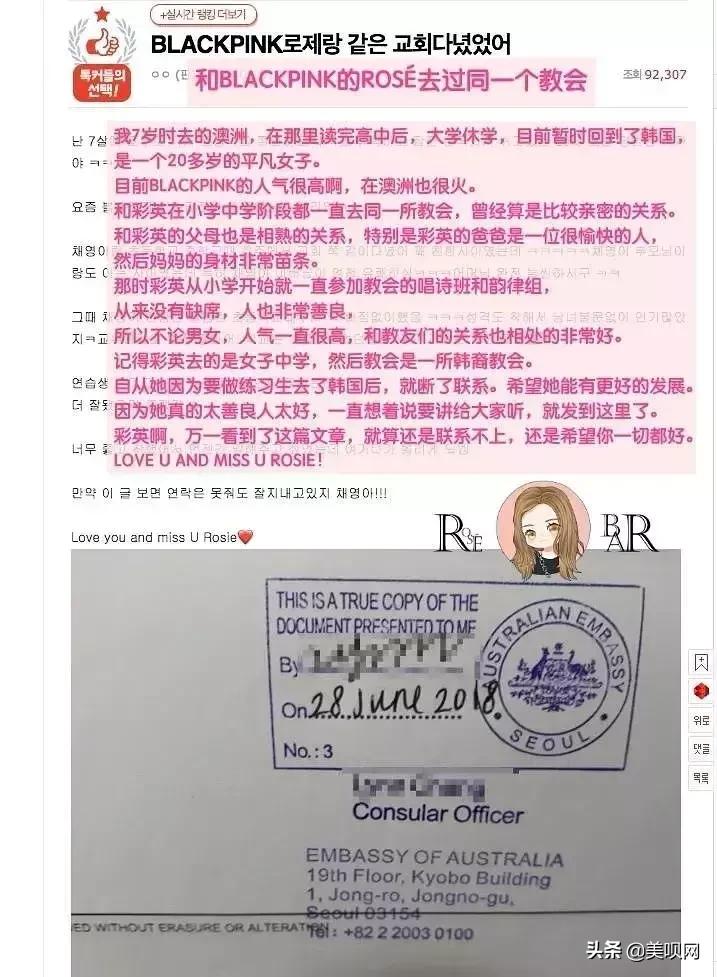 +실시간 랭킹 더보기
톡커들의
선택!
BLACKPINK로제랑 같은 교회다녔었어
ㅇㅇ (판
和BLACKPINK的ROSÉ去过同一个教会
조회 92,307
난 7살
我7岁时去的澳洲，在那里读完高中后，大学休学，目前暂时回到了韩国，
야 ㅋㅋ
是一个20多岁的平凡女子。
目前BLACKPINK的人气很高啊，在澳洲也很火。
요즘
和彩英在小学中学阶段都一直去同一所教会，曾经算是比较亲密的关系。
和彩英的父母也是相熟的关系，特别是彩英的爸爸是一位很愉快的人，
채영이
랑도
然后妈妈的身材非常苗条。
那时彩英从小学开始就一直参加教会的唱诗班和韵律组，
从来没有缺席，人也非常善良，
그때
所以不论男女，人气一直很高，和教友们的关系也相处的非常好。
지ㅋ
记得彩英去的是女子中学，然后教会是一所韩裔教会。
연습생
自从她因为要做练习生去了韩国后，就断了联系。希望她能有更好的发展。
더 잘
因为她真的太善良人太好，一直想着说要讲给大家听，就发到这里了。
너무
彩英啊，万一看到了这篇文章，就算还是联系不上，还是希望你一切都好。
LOVE U AND MISS U ROSIE！
만약 이 글 보면 연락은 못줘도 잘지내고있지 채영아!!!
ROSÉ BAR
Love you and miss U Rosie❤
THIS IS A TRUE COPY OF THE
DOCUMENT PRESENTED TO ME
By
On 28 June 2018
No.: 3
AUSTRALIAN EMBASSY
SEOUL
Consular Officer
EMBASSY OF AUSTRALIA
19th Floor, Kyobo Building
1, Jong-ro, Jongno-gu,
Seoul 03154
Tel : +82 2 2003 0100
ED WITHOUT ERASURE OR ALTERATION
위로
댓글
목록
头条 @美呗网